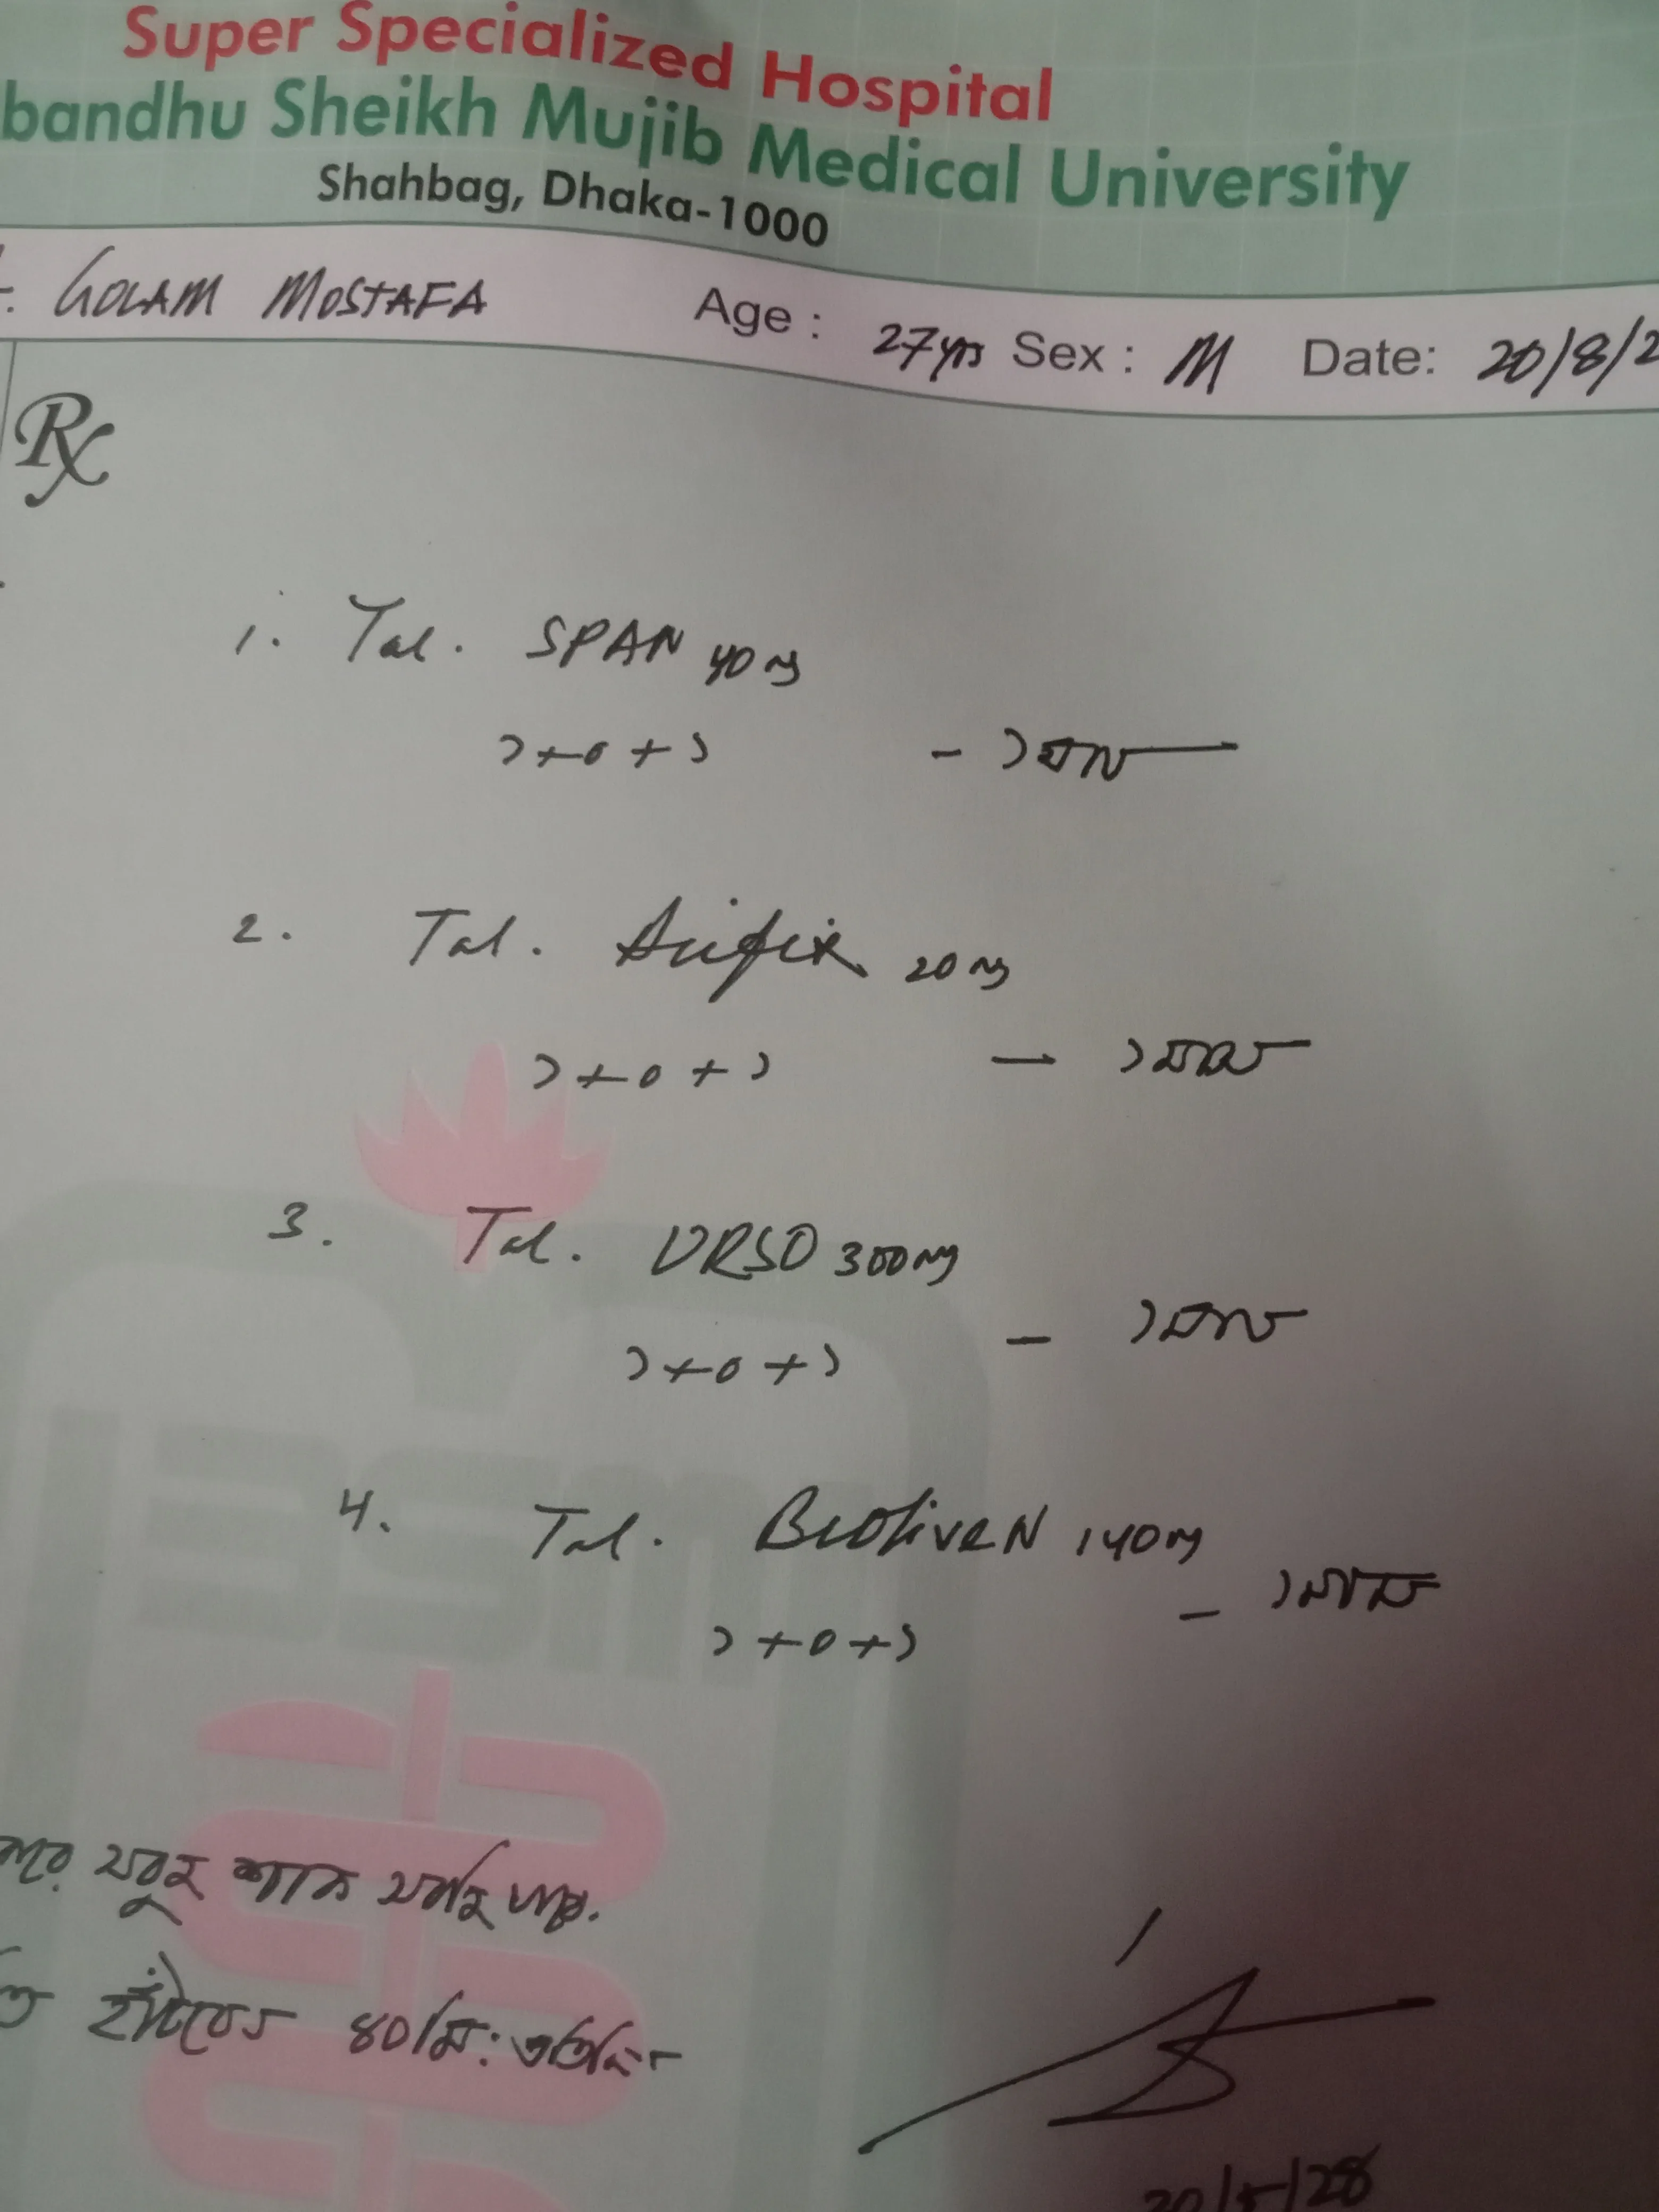 Super Specialized Hospital
bandhu Sheikh Mujib Medical University
Shahbag, Dhaka-1000
GOLAM MOSTAFA Age : 27yrs Sex : M Date: 20/8/2
Rx
1. Tab. SPAN 40mg
১+০+১ - ১মাস
2. Tab. Acifix 20mg
১+০+১ — ১মাস
3. Tab. URSO 300mg
১+০+১ — ১মাস
4. Tab. 140mg
১+০+১ — ১মাস
শাক
হাঁটবেন ৪০মি: প্রতিদিন